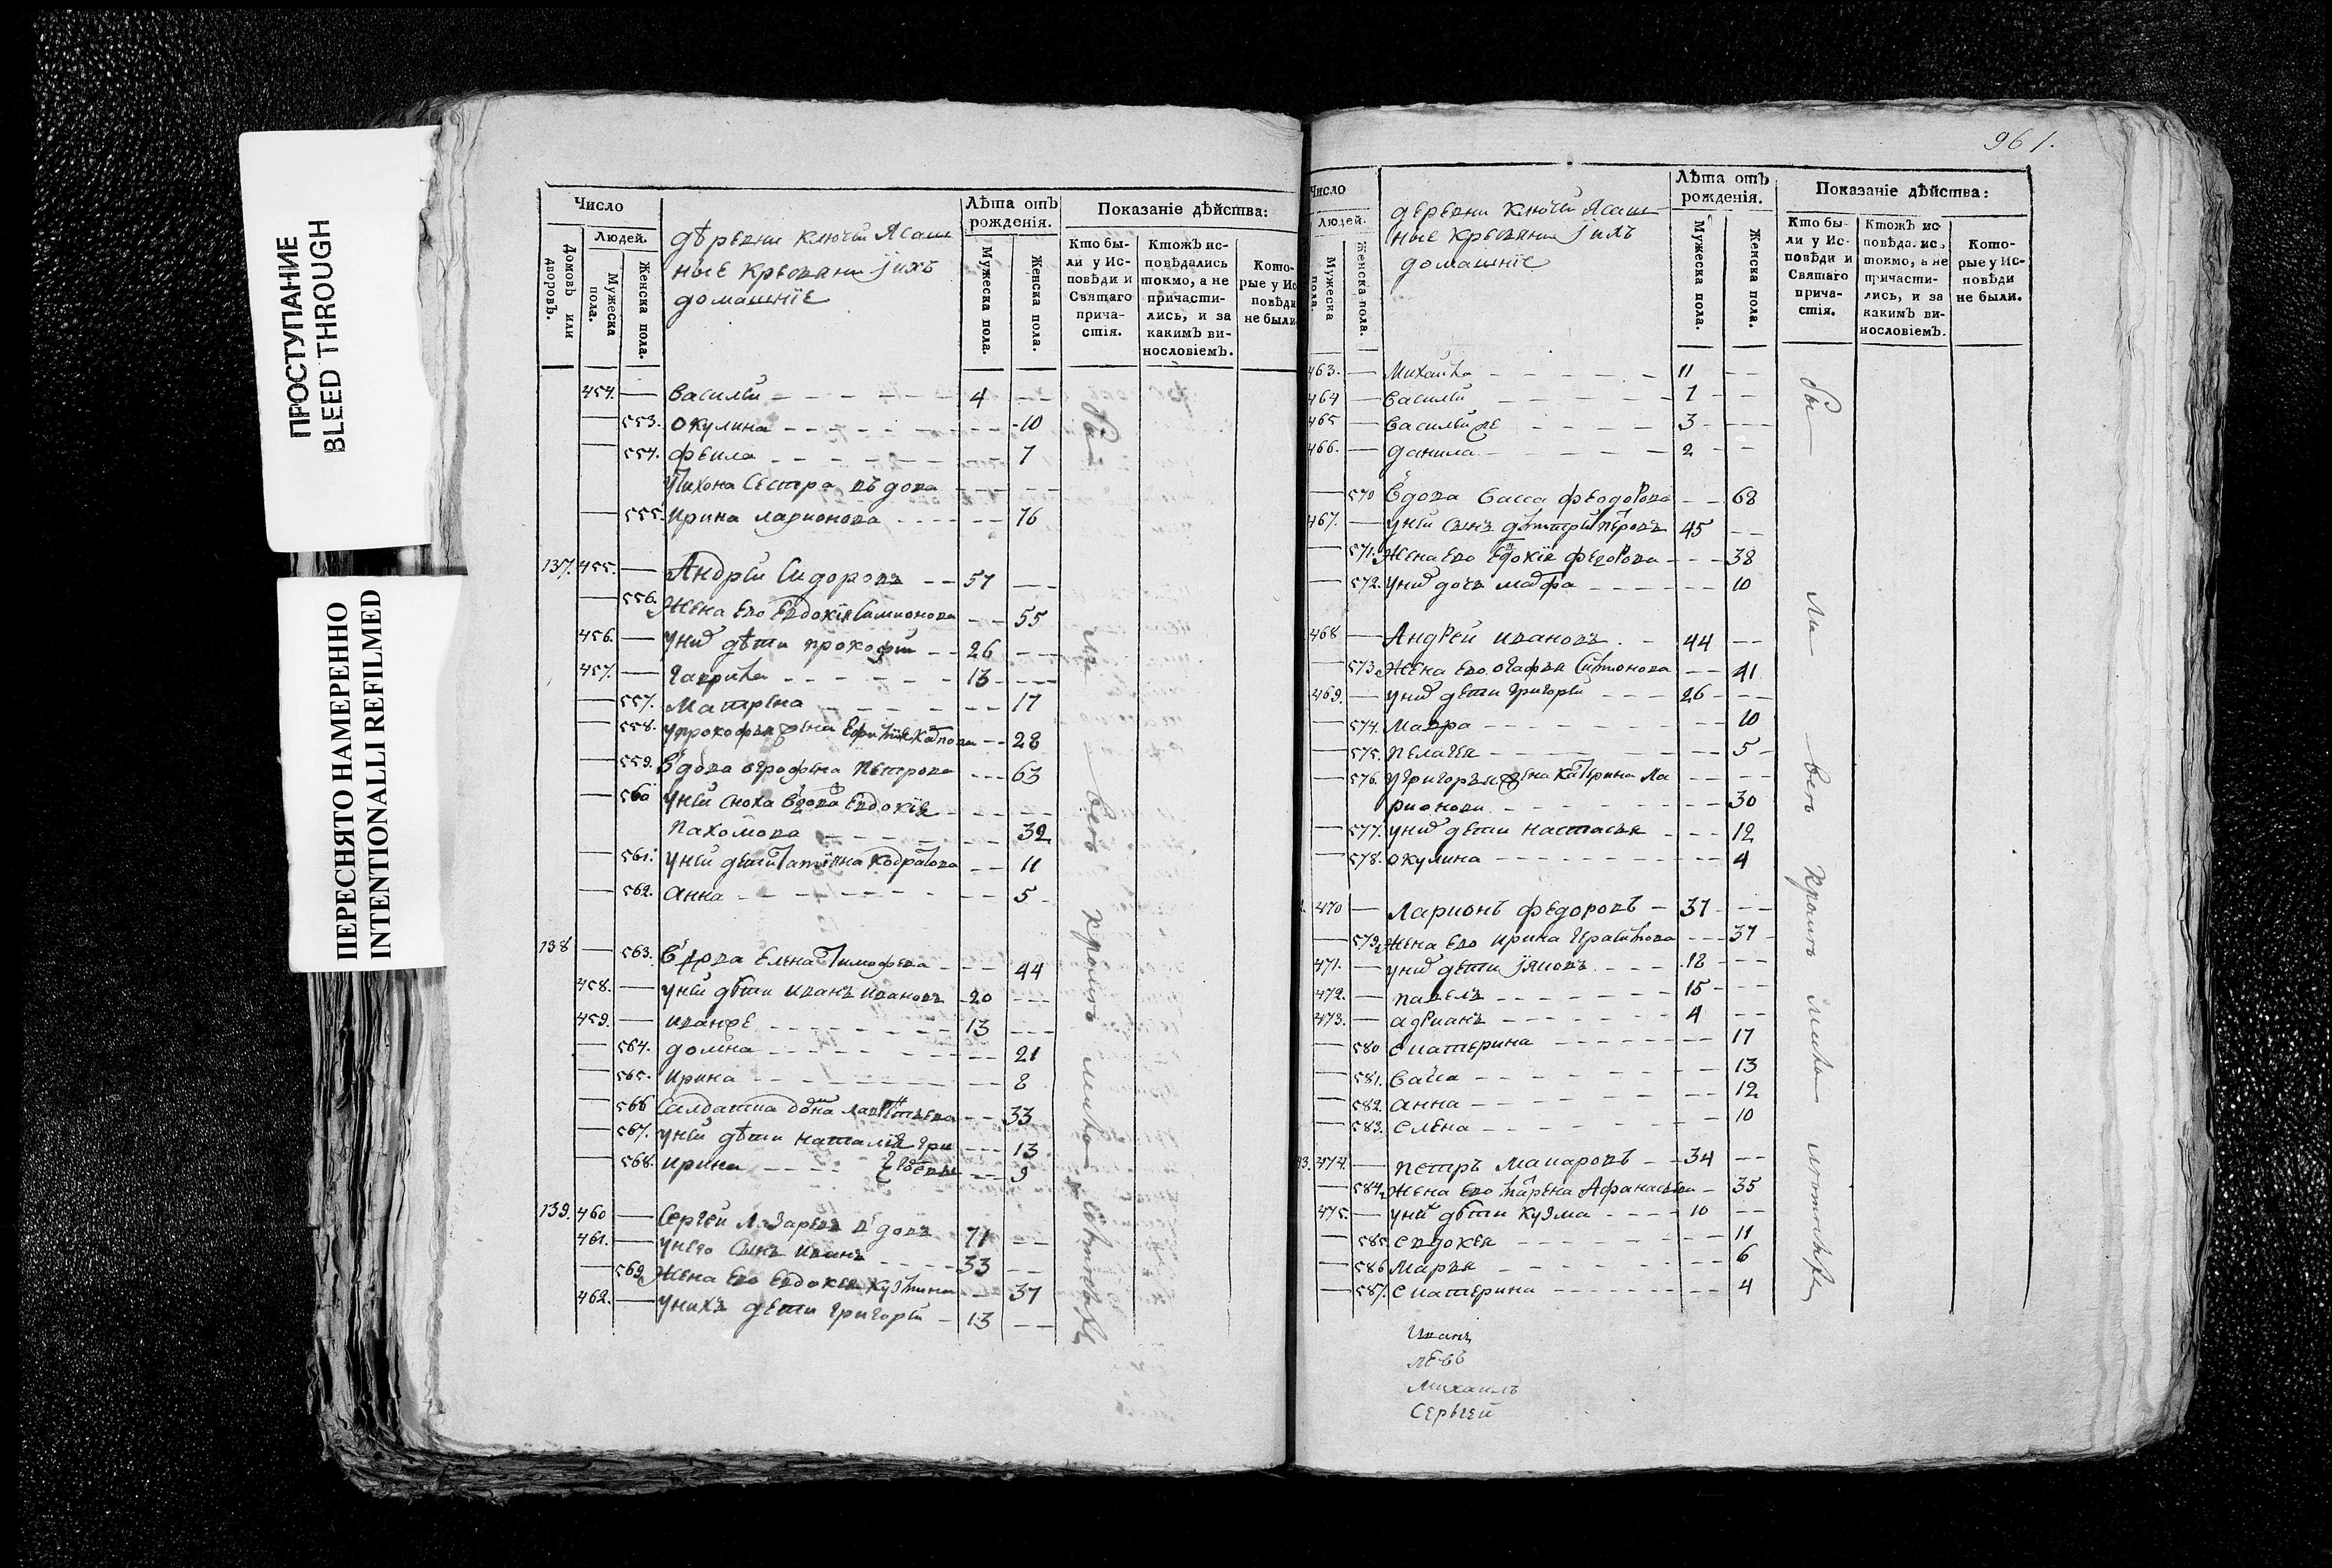 ПРОСТУПАНИЕ
BLEED THROUGH
ПЕРЕСНЯТО НАМЕРЕННО
INTENTIONALLI REFILMED
Число
Людей.
Домовъ или дворовъ.
Мужеска пола.
Женска пола.
дѣревни ключи Ясаш
ные крестьяни ј ихъ
домашнїе
Лѣта отъ рожденія.
Мужеска пола.
Женска пола.
Показаніе дѣйства:
Кто бы-
ли у Ис-
повѣди и
Святаго
прича-
стія.
Ктожъ ис-
повѣдались
токмо, а не
причасти-
лись, и за
какимъ ви-
нословіемъ.
Кото-
рые у Ис
повѣди
не были
454. Василей 4
553. Окулина 10
554. феила 7
Тихона сестра вдова
555. Ирина ларионова 76
137. 455. Андрей Сидоровъ 57
556. Жена ево Евдокїя Симионова 55
456. Уних дѣти прокофей 26
457. Гаврила 13
557. Матрена 17
558. Упрокофья жена 28
559. Вдова огрофена Петрова 63
560 Уней сноха вдова Евдокїя
Пахомова 32
561. Уней дети Татїяна 11
562. Анна 5
138 563. Вдова Елена Тимофева 44
458. Уней дѣти иванъ ивановъ 20
459. иванже 13
564. домна 21
565. Ирина 8
566 Салдатка домна 33
567. Уней дѣти наталия Гри 13
568. Ирина 9
139. 460 Сергей Лазаревъ вдовъ 71
461. Унего сынъ иванъ 33
569. Жена ево Евдокея Кузмина 37
462. Унихъ дети григорей 13
961.
Число
Людей.
Мужеска пола.
Женска пола.
деревни ключи Ясаш
ные крестьяни ј ихъ
домашнїе
Лѣта отъ рожденія.
Мужеска пола.
Женска пола.
Показаніе дѣйства:
Кто бы-
ли у Ис-
повѣди и
Святаго
прича-
стія.
Ктожъ ис-
повѣда ис,
токмо, а не
причасти-
лись, и за
какимъ ви-
нословіемъ.
Кото-
рые у Ис-
повѣди
не были.
463. Михайла 11
464 Василей 7
465 Василей же 3
466. данила 2
570 Вдова Васса феодорова 68
467. Уней сынъ дмитрей 45
571. Жена ево Евдокїя федорова 38
572. Уних дочь марфа 10
468 Андрей ивановъ 44
573. Жена ево огафья Симионова 41
469. Уних дети григорей 26
574. Мавра 10
575. Пелагея 5
576. Угригорья жена катерина Ла
рионова 30
577. Уних дети настасья 12
578. Окулина 4
470 Ларионъ федоровъ 37
579. Жена ево ирина Герасимова 37
471. Уних дети 18
472. Павелъ 15
473. Адрианъ 4
580 Екатерина 17
581. Васса 13
582. Анна 12
583. Елена 10
474. Петръ Макаровъ 34
584. Жена ево Афанасьева 35
475. Уних дѣти кузма 10
585. Евдокея 11
586 Марья 6
587. Екатерина 4
Иванъ
левъ
Михаилъ
Сергей